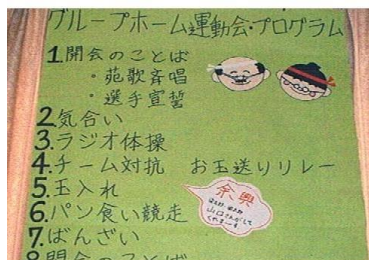 グループホーム運動会・プログラム
1.開会のことば
・苑歌斉唱
・選手宣誓
2.気合い
3.ラジオ体操
4.チーム対抗 お玉送りリレー
5.玉入れ
余興
山口さんがして
くれまーす
6.パン食い競走
7.ばんざい
8.閉会のことば